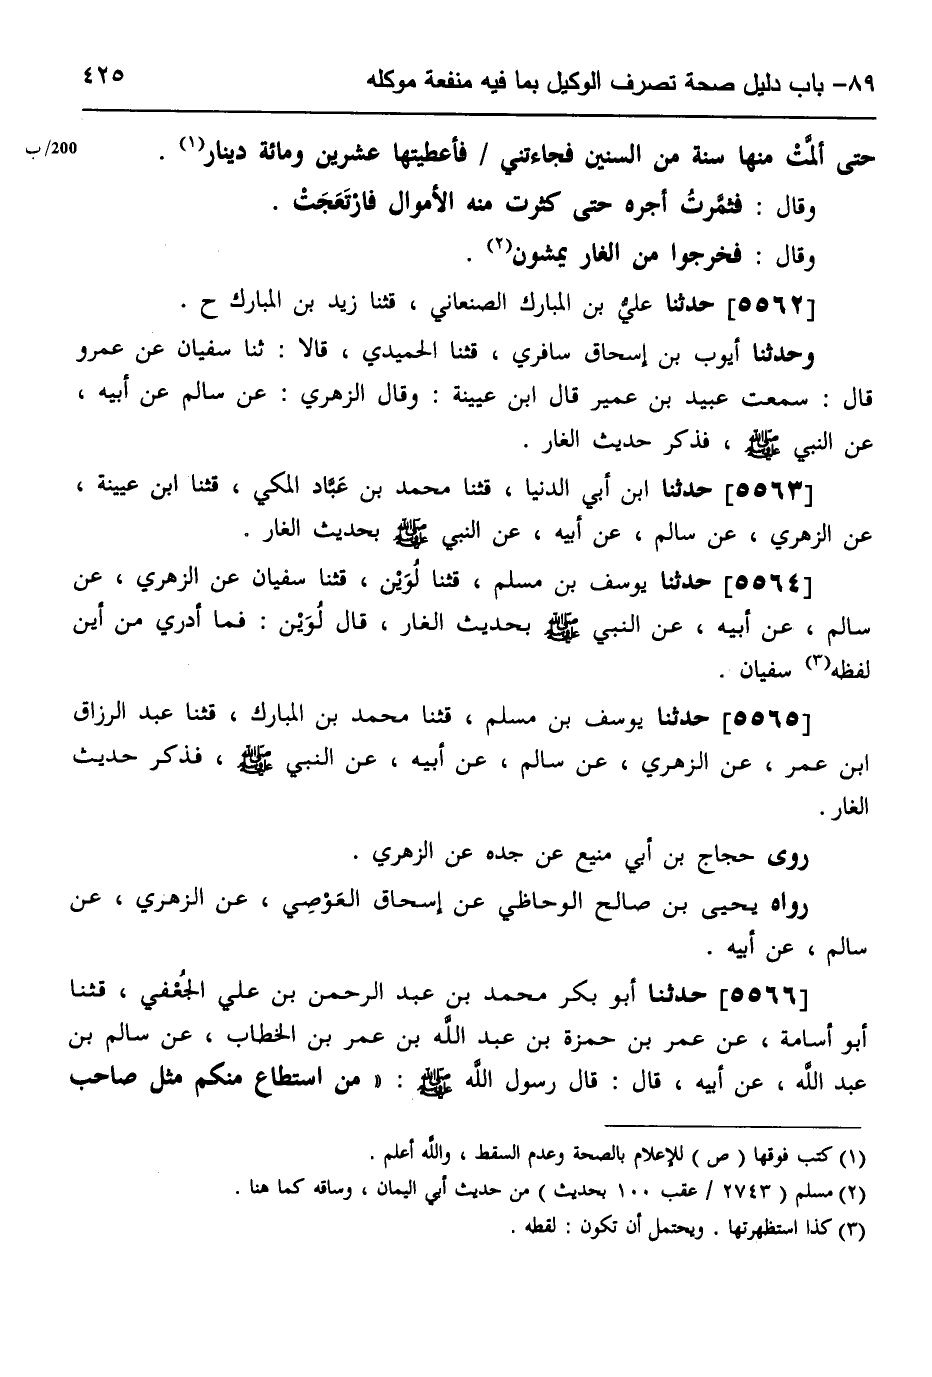 ٨٩- باب دليل صحة تصرف الوكيل بما فيه منفعة موكله ٤٢٥
حتى ألمَّتْ منها سنة من السنين فجاءتني / فأعطيتها عشرين ومائة دينار(١) . 200/ب
وقال : فثمَّرتُ أجره حتى كثرت منه الأموال فارْتَعَجَتْ .
وقال : فخرجوا من الغار يمشون(٢) .
[٥٥٦٢] حدثنا عليُّ بن المبارك الصنعاني ، قثنا زيد بن المبارك ح .
وحدثنا أيوب بن إسحاق سافري ، قثنا الحميدي ، قالا : ثنا سفيان عن عمرو
قال : سمعت عبيد بن عمير قال ابن عيينة : وقال الزهري : عن سالم عن أبيه ،
عن النبي ﷺ ، فذكر حديث الغار .
[٥٥٦٣] حدثنا ابن أبي الدنيا ، قثنا محمد بن عَبَّاد المكي ، قثنا ابن عيينة ،
عن الزهري ، عن سالم ، عن أبيه ، عن النبي ﷺ بحديث الغار .
[٥٥٦٤] حدثنا يوسف بن مسلم ، قثنا لُوَيْن ، قثنا سفيان عن الزهري ، عن
سالم ، عن أبيه ، عن النبي ﷺ بحديث الغار ، قال لُوَيْن : فما أدري من أين
لفظه(٣) سفيان .
[٥٥٦٥] حدثنا يوسف بن مسلم ، قثنا محمد بن المبارك ، قثنا عبد الرزاق
ابن عمر ، عن الزهري ، عن سالم ، عن أبيه ، عن النبي ﷺ ، فذكر حديث
الغار .
روى حجاج بن أبي منيع عن جده عن الزهري .
رواه يحيى بن صالح الوحاظي عن إسحاق العَوْصِي ، عن الزهري ، عن
سالم ، عن أبيه .
[٥٥٦٦] حدثنا أبو بكر محمد بن عبد الرحمن بن علي الجُعْفي ، قثنا
أبو أسامة ، عن عمر بن حمزة بن عبد اللَّه بن عمر بن الخطاب ، عن سالم بن
عبد اللَّه ، عن أبيه ، قال : قال رسول اللَّه ﷺ : « من استطاع منكم مثل صاحب
(١) كتب فوقها ( ص ) للإعلام بالصحة وعدم السقط ، واللَّه أعلم .
(٢) مسلم ( ٢٧٤٣ / عقب ١٠٠ بحديث ) من حديث أبي اليمان ، وساقه كما هنا .
(٣) كذا استظهرتها . ويحتمل أن تكون : لقطه .